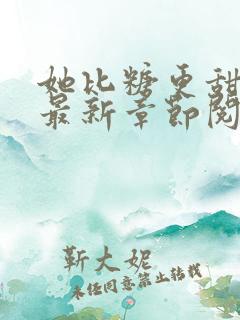 她比糖更甜
最新章节阅
靳大妮
未经同意禁止转载